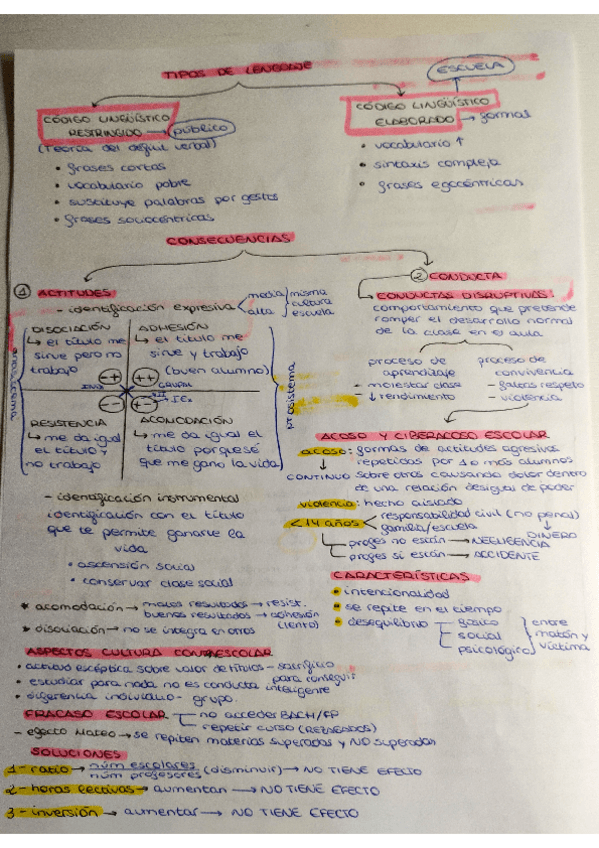 TIPOS DE LENGUAJE
ESCUELA
CÓDIGO LINGÜÍSTICO
RESTRINGIDO → público
(Teoría del déficit verbal)
• frases cortas
• vocabulario pobre
• sustituye palabras por gestos
• frases sociocéntricas
CÓDIGO LINGÜÍSTICO
ELABORADO → formas
• vocabulario ↑
• sintaxis compleja
• frases egocéntricas
CONSECUENCIAS
① ACTITUDES
- identificación expresiva
media
alta
misma
cultura
escuela
DISOCIACIÓN
↳ el título me
sirve pero no
trabajo
ADHESIÓN
↳ el título me
sirve y trabajo
(buen alumno)
RESISTENCIA
↳ me da igual
el título y
no trabajo
ACOMODACIÓN
↳ me da igual el
título porque sé
que me gano la vida
Prosistema
- identificación instrumental
identificación con el título
que te permite ganarte la
vida
• ascensión social
• conservar clase social
* acomodación → malos resultados → resist.
buenos resultados → adhesión
(lento)
* disociación → no se integra en otros
ASPECTOS CULTURA CONTRAESCOLAR
• actitud escéptica sobre valor de títulos - sacrificio
para conseguir
• estudiar para nada no es conducta inteligente
• diferencia individuo - grupo.
FRACASO ESCOLAR
no acceder BACH/FP
repetir curso (REZAGADOS)
- efecto Mateo → se repiten materias superadas y NO superadas
SOLUCIONES
1 - ratio → núm escolares
núm profesores (disminuir) → NO TIENE EFECTO
2 - horas lectivas → aumentan → NO TIENE EFECTO
3 - inversión → aumentar → NO TIENE EFECTO
② CONDUCTA
CONDUCTAS DISRUPTIVAS:
comportamiento que pretende
romper el desarrollo normal
de la clase en el aula
proceso de
aprendizaje
- molestar clase
- ↓ rendimiento
proceso de
convivencia
- faltas respeto
- violencia
ACOSO Y CIBERACOSO ESCOLAR
acoso: formas de actitudes agresivas
repetidas por 1 o más alumnos
CONTINUO sobre otros causando dolor dentro
de una relación desigual de poder
violencia: hecho aislado
< 14 años
responsabilidad civil (no penal)
familia/escuela
DINERO
profes no están → NEGLIGENCIA
profes si están → ACCIDENTE
CARACTERÍSTICAS
• intencionalidad
• se repite en el tiempo
• desequilibrio
físico
social
psicológico
entre
matón y
víctima